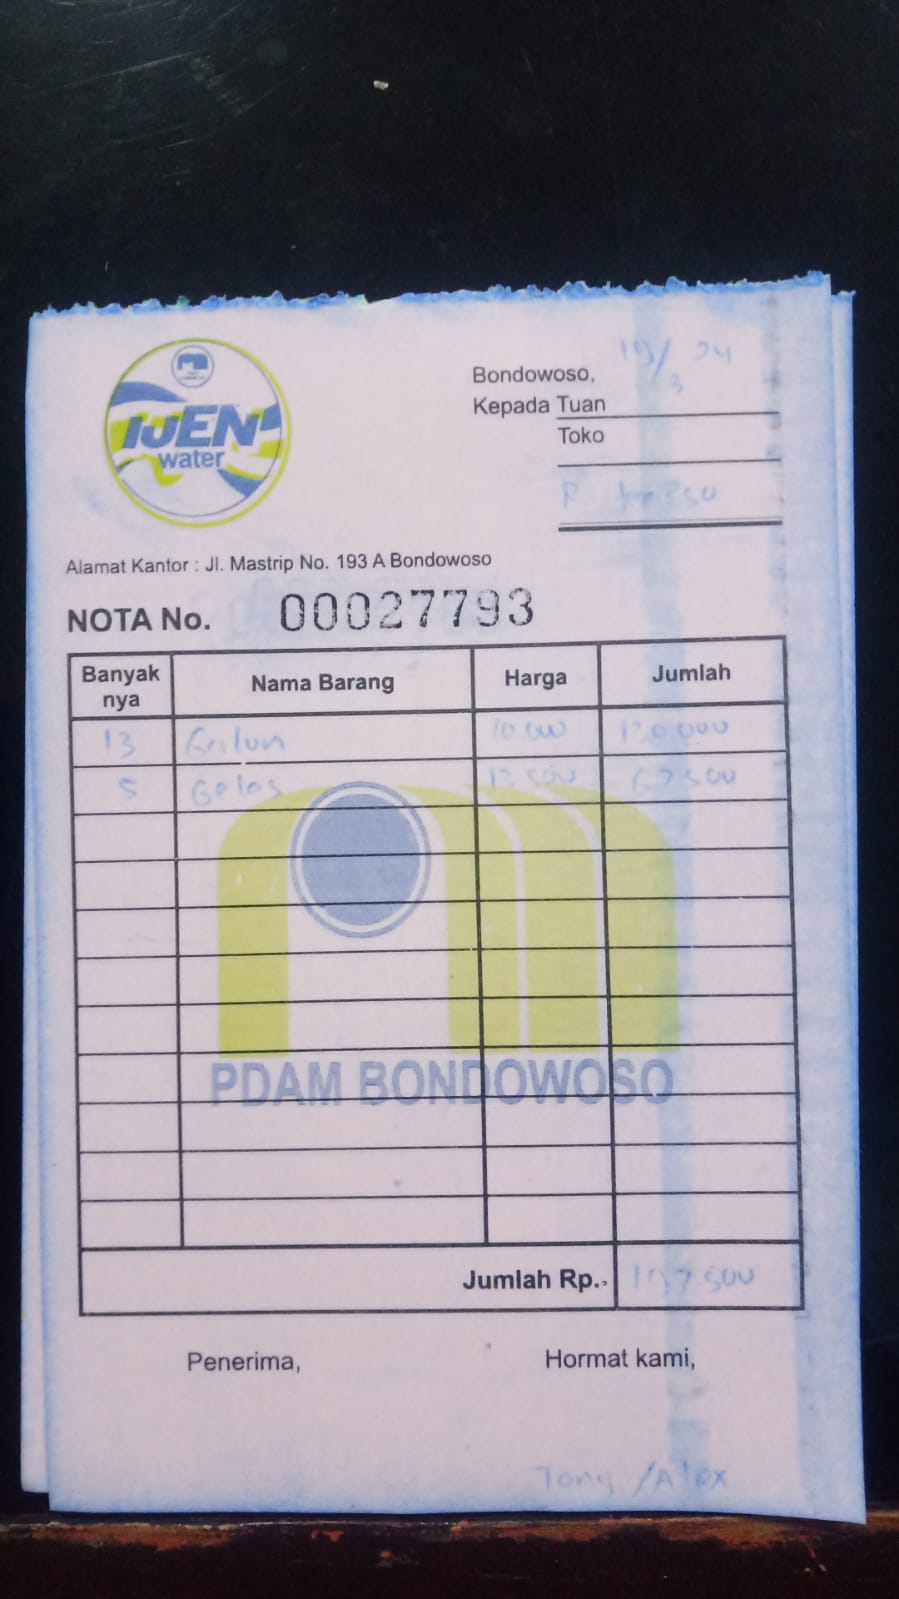 IJEN
water
Bondowoso, 19/3 24
Kepada Tuan
Toko
P.
Alamat Kantor : Jl. Mastrip No. 193 A Bondowoso
NOTA No. 00027793
Banyak nya Nama Barang Harga Jumlah
13 Galun 10 000 130.000
5 Gelas 13 500 67.500
PDAM BONDOWOSO
Jumlah Rp.. 197.500
Penerima, Hormat kami,
Tong / Alex